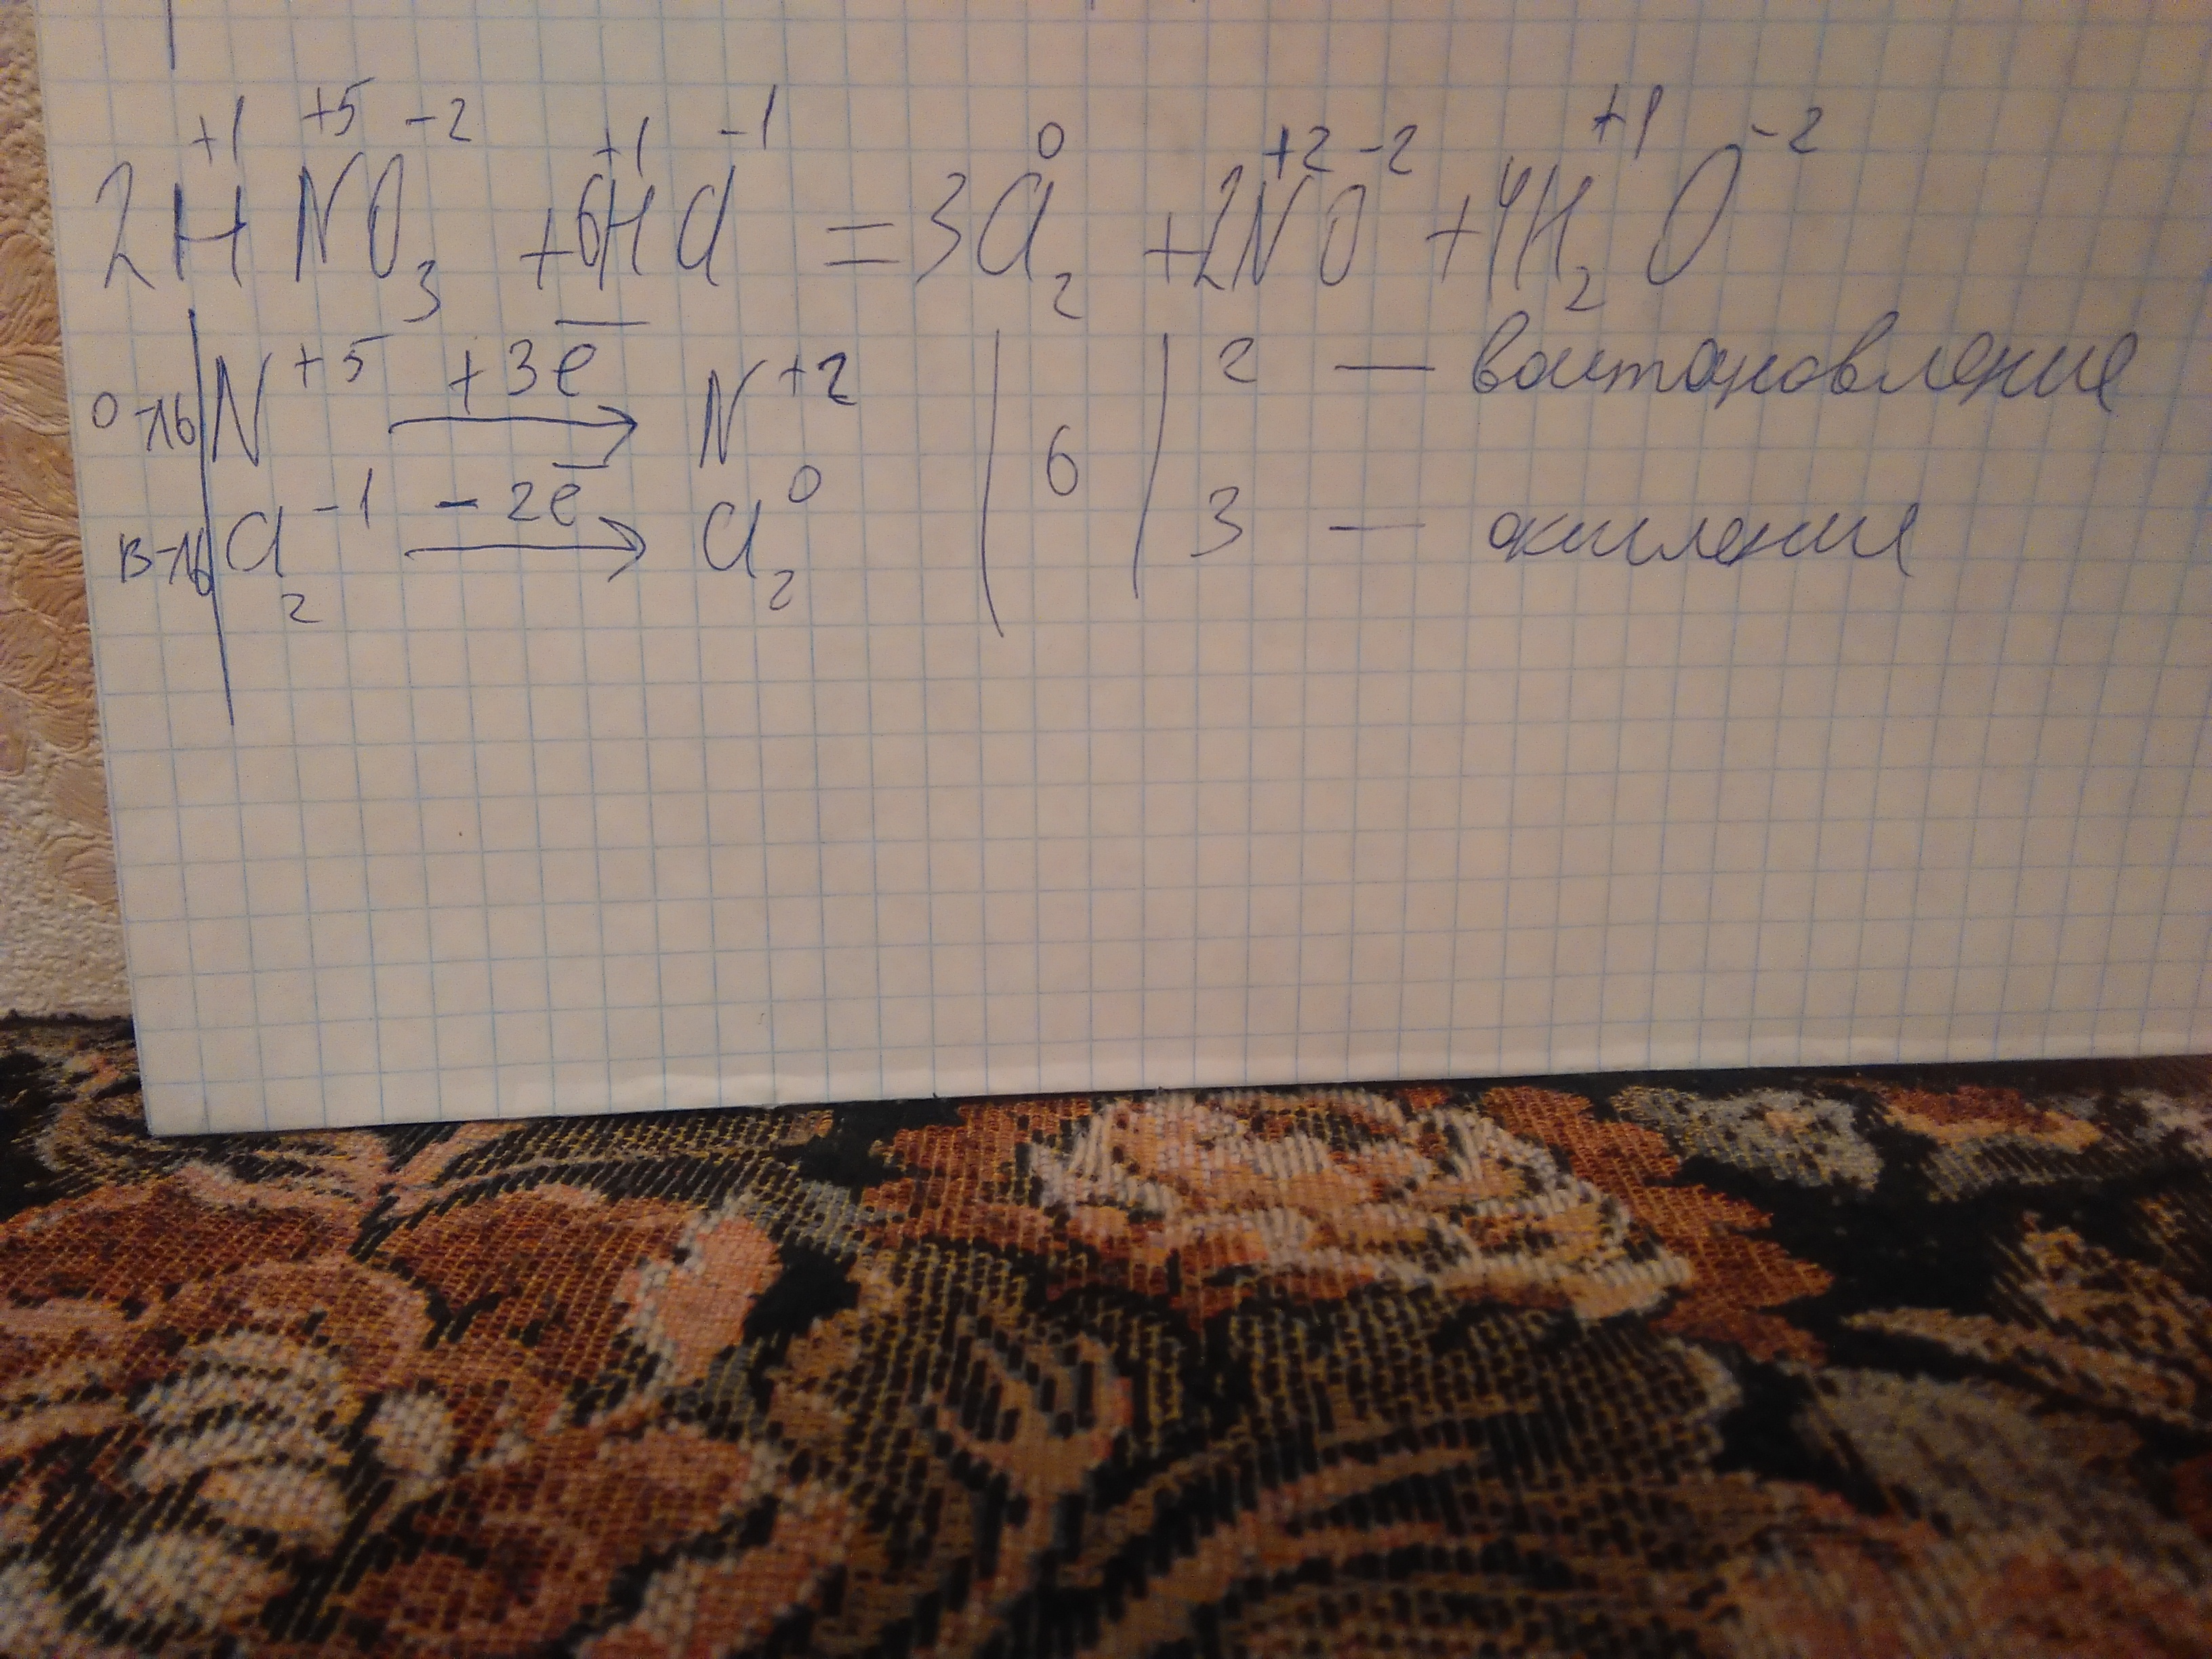 2H⁺¹N⁺⁵O₃⁻² + 6H⁺¹Cl⁻¹ = 3Cl₂⁰ + 2N⁺²O⁻² + 4H₂⁺¹O⁻²
о-ль | N⁺⁵ +3e̅ → N⁺² | 6 | 2 — восстановление
в-ль | Cl₂⁻¹ -2e̅ → Cl₂⁰ | | 3 — окисление